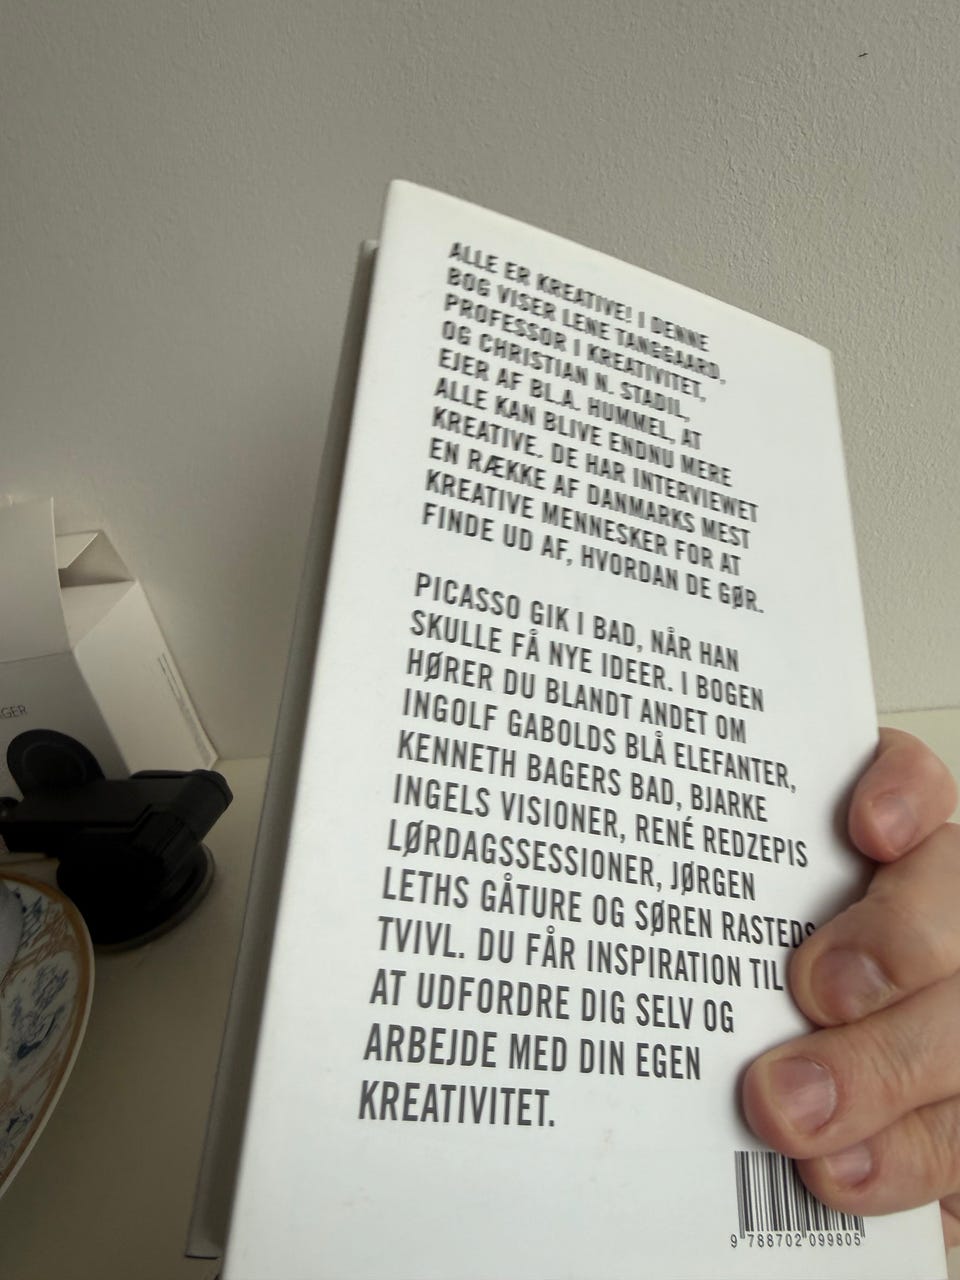 ALLE ER KREATIVE! I DENNE
BOG VISER LENE TANGGAARD,
PROFESSOR I KREATIVITET,
OG CHRISTIAN N. STADIL,
EJER AF BL.A. HUMMEL, AT
ALLE KAN BLIVE ENDNU MERE
KREATIVE. DE HAR INTERVIEWET
EN RÆKKE AF DANMARKS MEST
KREATIVE MENNESKER FOR AT
FINDE UD AF, HVORDAN DE GØR.
PICASSO GIK I BAD, NÅR HAN
SKULLE FÅ NYE IDEER. I BOGEN
HØRER DU BLANDT ANDET OM
INGOLF GABOLDS BLÅ ELEFANTER,
KENNETH BAGERS BAD, BJARKE
INGELS VISIONER, RENÉ REDZEPIS
LØRDAGSSESSIONER, JØRGEN
LETHS GÅTURE OG SØREN RASTEDS
TVIVL. DU FÅR INSPIRATION TIL
AT UDFORDRE DIG SELV OG
ARBEJDE MED DIN EGEN
KREATIVITET.
9 788702 099805